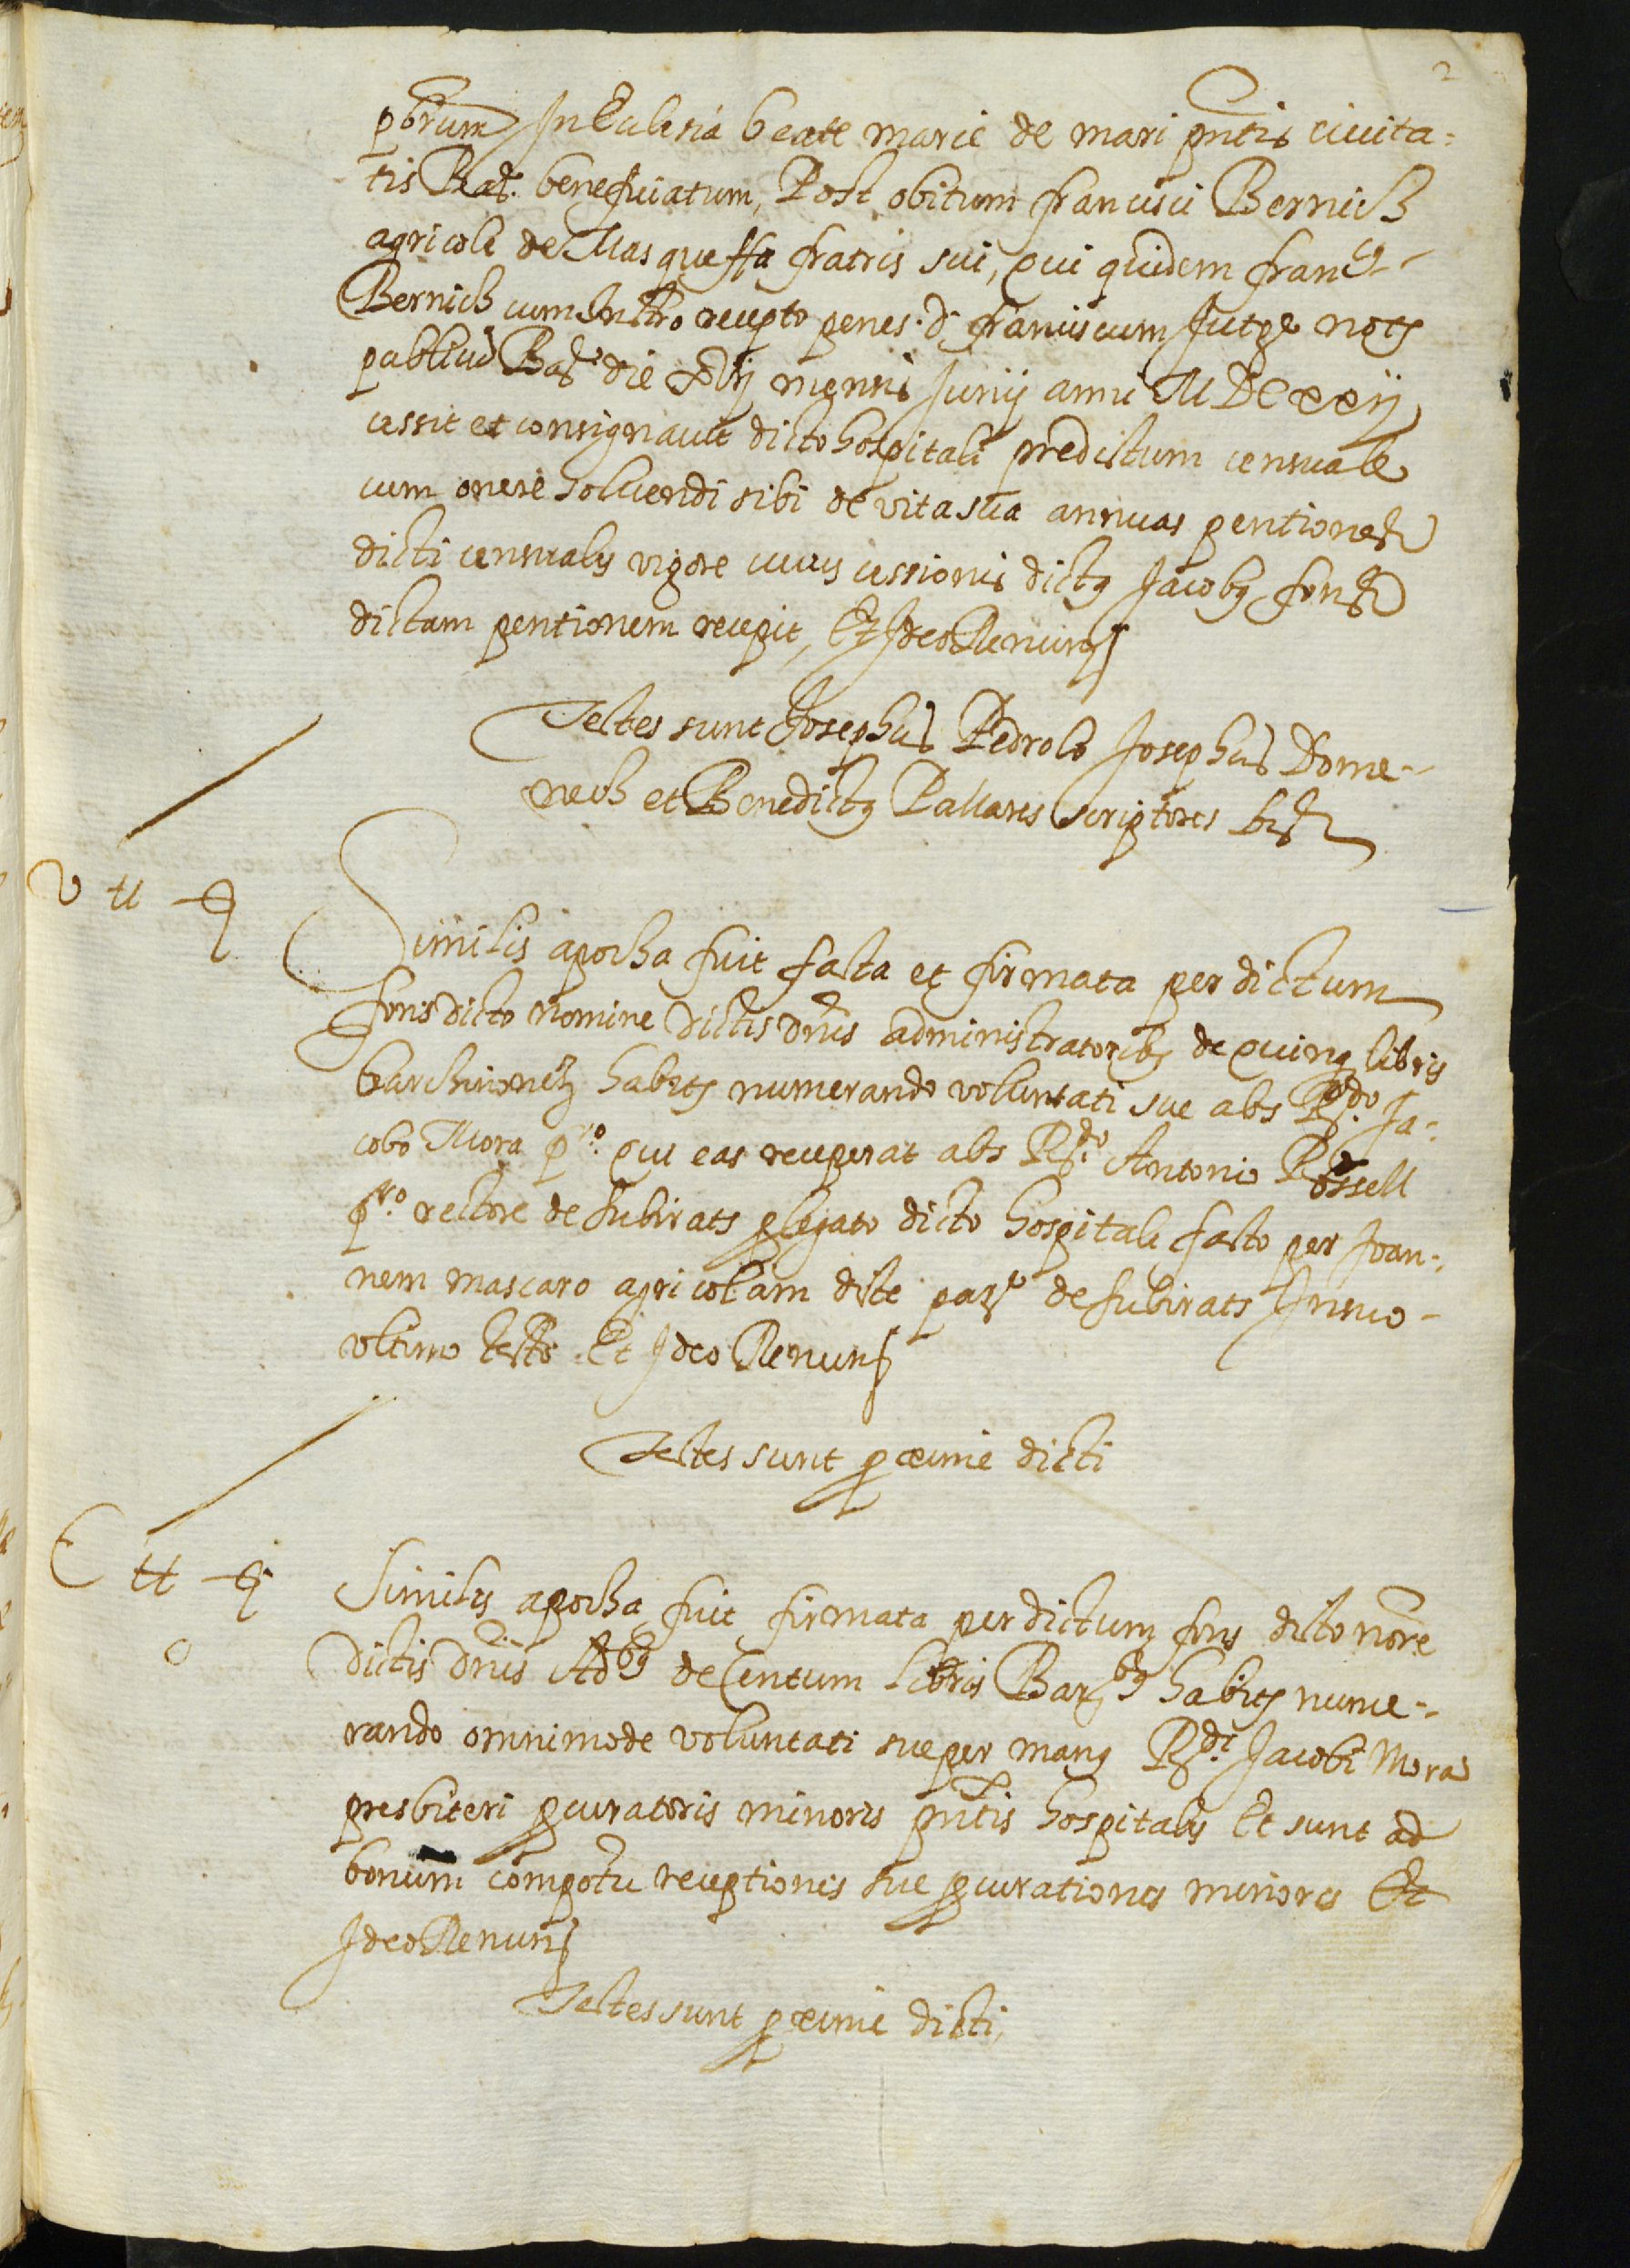 2
pbrum In Eclesia beate marie de mari pntis civita-
tis Bar. beneficiatum, Post obitum francisci Bernich
agricole de Masqueffa fratris sui, qui quidem franc9-
Bernich cum Instro recepto penes d. franciscum Jutge nots
publicu Bare die mensis Junij anni MDCxxij
cessit et consignavit dicto hospitali predictum censuale
cum onere solvendi sibi de vita sua annuas pentiones
dicti censualis vigore cuius cessionis dict9 Jacob9 fons
dictam pentionem recepit, Et Ideo Renun
Testes sunt Josephus Pedrolo Josephus Dome-
nech et Benedict9 Pallares scriptores
V tt
Similis apocha fuit facta et firmata per dictum
fons dicto nomine dictis dnis administratorib9 de quinq libris
barchinonen habits numerando voluntati sue abs Rdo. Ja-
cobo Mora pro. qui eas recuperat abs Rdo. Antoni Rossell
pro rectore de Subirats p legato dicto hospitali facto per Joan-
nem mascaro agricolam dicte pare de Subirats In suo-
ultimo testto Et Ideo Renun
Testes sunt pxime dicti
C tt
Similis apocha fuit firmata per dictum fons dicto nore
dictis Dnis Adb9 de Centum libris Barb9 habits nume-
rando omnimode voluntati sue per man9 Rdi. Jacobi Mora
presbiteri pcuratoris minoris pntis hospitalis Et sunt ad
bonum compotu receptionis sue pcurationis minoris Et
Ideo Renun
Testes sunt pxime dicti,